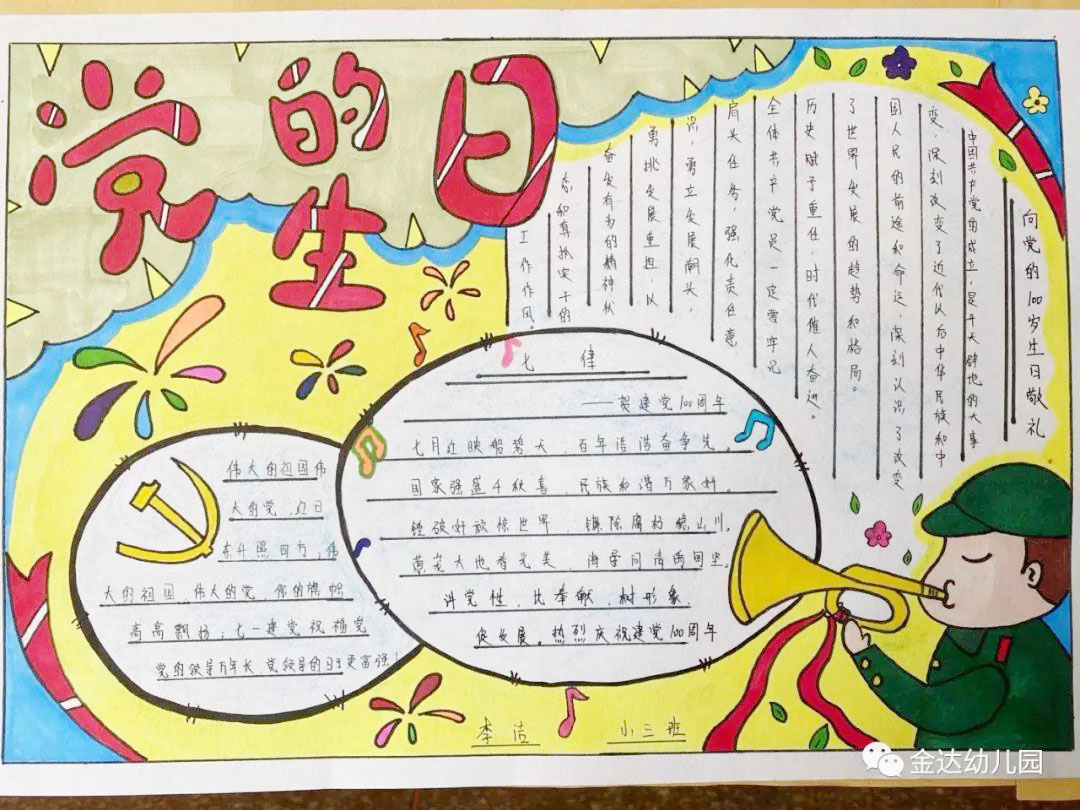 党的生日
向党的100岁生日敬礼
中国共产党的成立，是开天辟地的大事
变，深刻改变了近代以后中华民族和中
国人民的前途和命运，深刻认识了改变
了世界发展的趋势和格局。
历史赋予重任，时代催人奋进。
全体共产党员一定要牢记
肩头任务，强化责任意
识，勇立发展潮头，
勇挑发展重担，以
奋发有为的精神状
态和真抓实干的
工作作风。
七律
——贺建党100周年
七月红映船碧天，百年浩浩奋争先。
国家强盛千秋喜，民族和谐万家
世界，镰除腐朽山川。
大地春光美，海
讲党性，比奉献，树形象，
促发展。热烈庆祝建党100周年
伟大的祖国伟
大的党，红日
东升照四方，伟
大的祖国，伟大的党，你的旗帜
高高飘扬，七一建党祝福党
党的领导万年长，党领导的日子更富强！
李洁 小三班
金达幼儿园